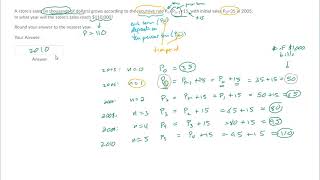 A store's sales (in thousands of dollars) grows according to the recursive rule Pn=Pn-1+15, with initial sales P0=35 in 2005.
In what year will the store's sales reach $110,000?
Round your answer to the nearest year.
Your Answer:
2010
Answer
P = 110
time period
# if $1,000
2005: n=0 P0 = 35
2006: n=1 P1 = P0 + 15 = 35 + 15 = 50
n=2 P2 = P1 + 15 = 50 + 15 = 65
2008: n=3 P3 = P2 + 15 = 65 + 15 = 80
2009: n=4 P4 = P3 + 15 = 80 + 15 = 95
2010: n=5 P5 = P4 + 15 = 95 + 15 = 110